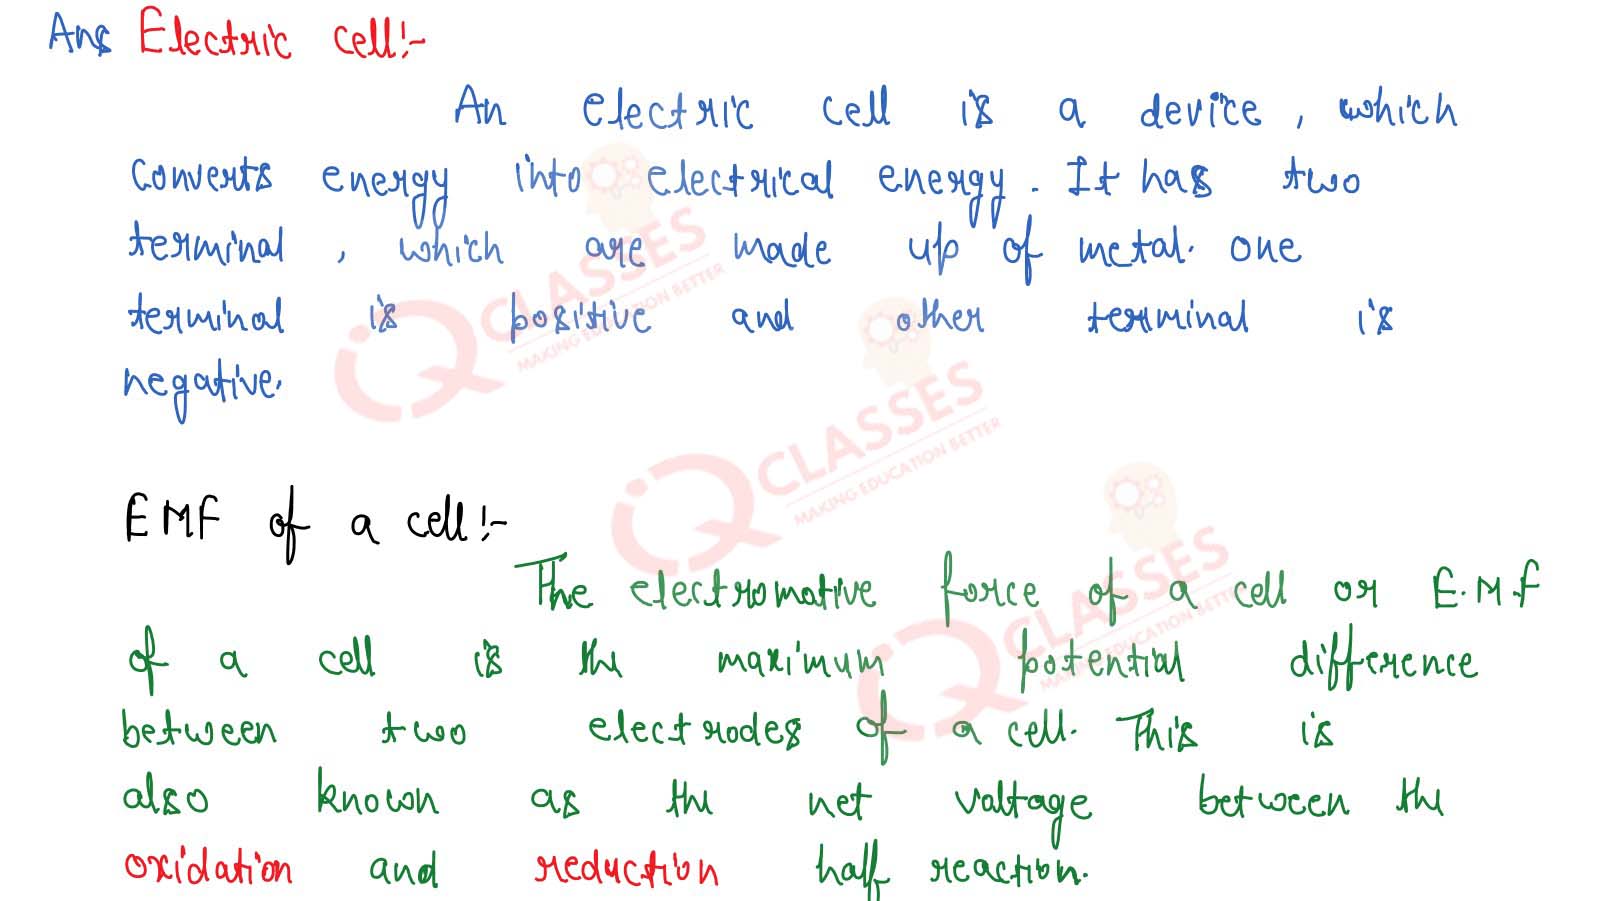 Ans Electric cell:-
An electric cell is a device, which
converts energy into electrical energy. It has two
terminal, which are made up of metal. one
terminal is positive and other terminal is
negative.
EMF of a cell:-
The electromotive force of a cell or E.M.F
of a cell is the maximum potential difference
between two electrodes of a cell. This is
also known as the net voltage between the
oxidation and reduction half reaction.
iQ CLASSES
MAKING EDUCATION BETTER
iQ CLASSES
MAKING EDUCATION BETTER
iQ CLASSES
MAKING EDUCATION BETTER